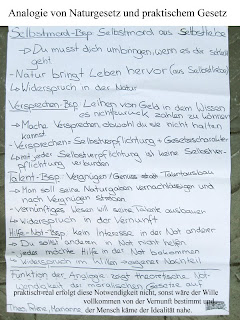 Analogie von Naturgesetz und praktischem Gesetz
Selbstmord-Bsp Selbstmord aus Selbstliebe
→ Du musst dich umbringen, wenn es dir schlecht
geht
- Natur bringt Leben hervor (aus Selbstliebe)
↳ Widerspruch in der Natur
Versprechen-Bsp Leihen von Geld in dem Wissen
es nicht zurück zahlen zu können
→ Mache Versprechen, obwohl du sie nicht halten
kannst
- Versprechen = Selbstverpflichtung = Gesetzescharakter
↳ mit jeder Selbstverpflichtung ist keine Selbstver-
pflichtung verbunden
Talent-Bsp Vergnügen/Genuss statt Talentausbau
→ Man soll seine Naturgaben vernachlässigen und
nach Vergnügen streben
- vernünftiges Wesen will seine Talente ausbauen
↳ Widerspruch in der Vernunft
Hilfe-Not-Bsp Kein Interesse in der Not anderer
→ Du sollst anderen in Not nicht helfen
- jeder möchte Hilfe in der Not bekommen
↳ Widerspruch im Willen
Funktion der Analogie: zeigt theoretische Not-
wendigkeit des moralischen Gesetzes auf
praktisch/real erfolgt diese Notwendigkeit nicht, sonst wäre der Wille
vollkommen von der Vernunft bestimmt und
der Mensch käme der Idealität nahe.
Marianne